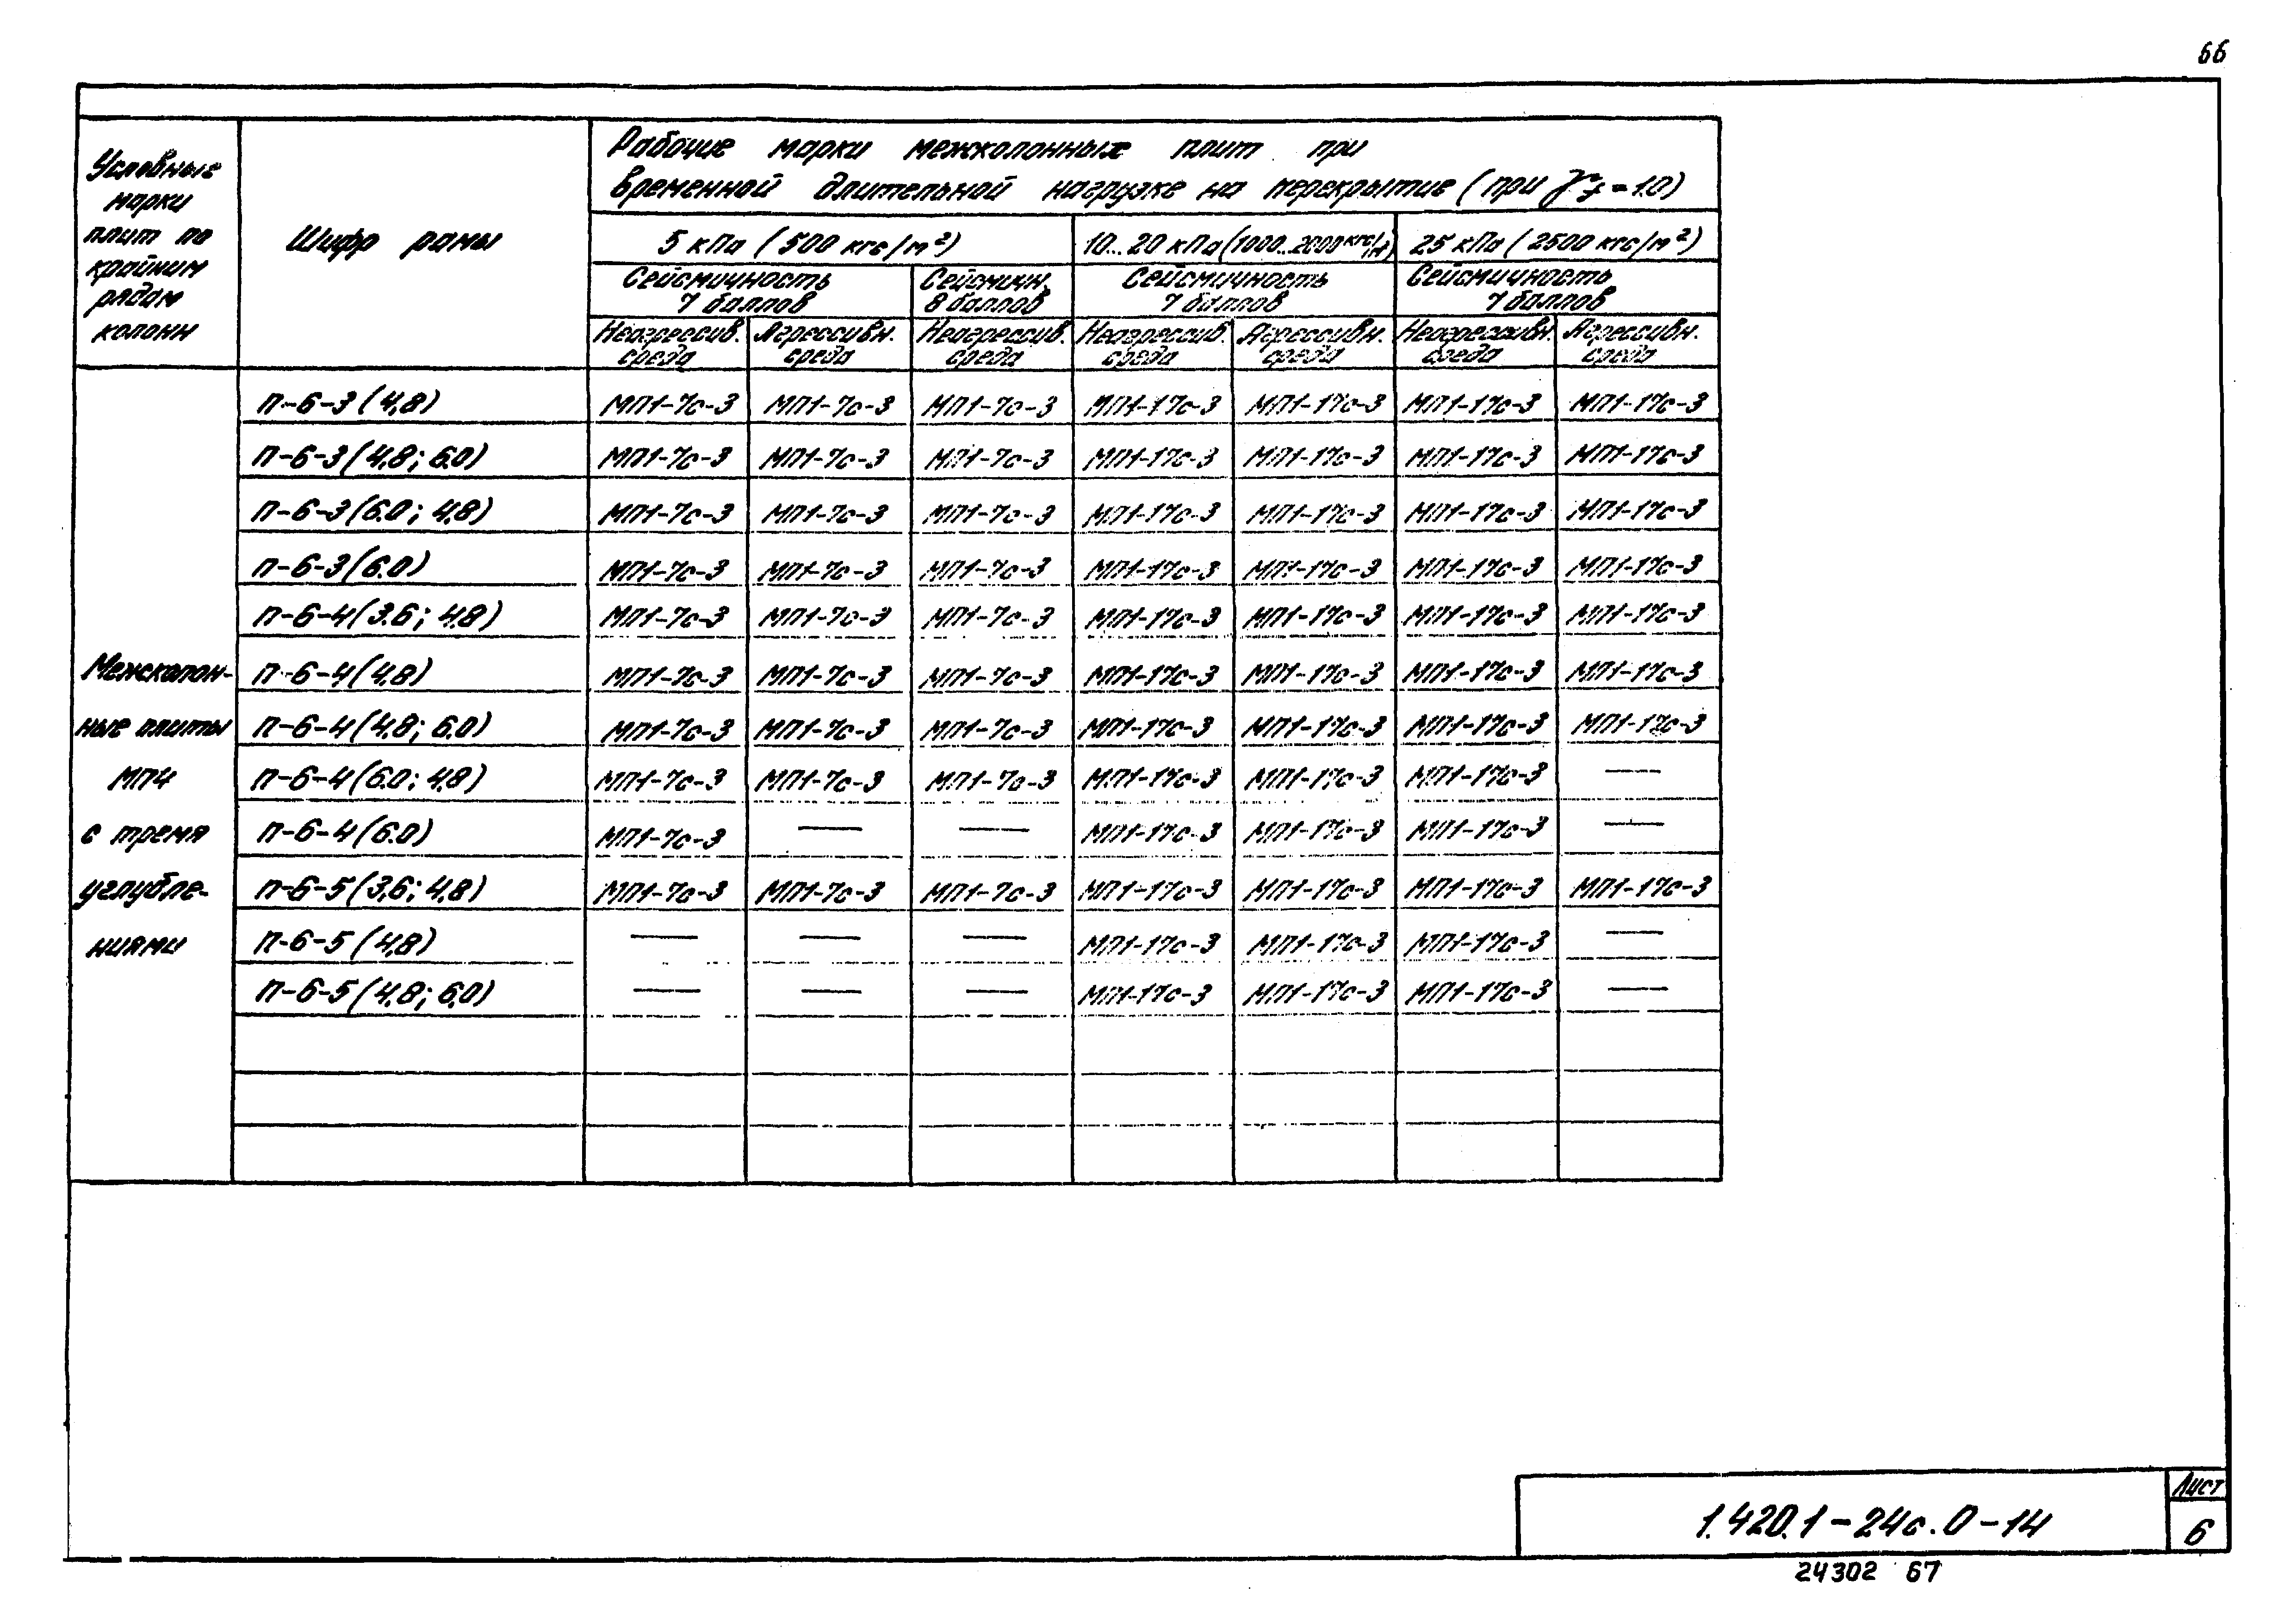 66
Условные марки плит по крайним рядам колонн
Шифр рамы
Рабочие марки межколонных плит при
временной длительной нагрузке на перекрытие (при γf = 1.0)
5 кПа (500 кгс/м²) 10...20 кПа (1000...2000 кгс/м²) 25 кПа (2500 кгс/м²)
Сейсмичность 7 баллов Сейсмичн. 8 баллов Сейсмичность 7 баллов Сейсмичность 7 баллов
Неагрессив. среда Агрессивн. среда Неагрессив. среда Неагрессив. среда Агрессивн. среда Неагрессивн. среда Агрессивн. среда
Межколон-
ные плиты
МП4
с тремя
углубле-
ниями
П-6-3 (4,8) МП1-7с-3 МП1-7с-3 МП1-7с-3 МП1-17с-3 МП1-17с-3 МП1-17с-3 МП1-17с-3
П-6-3 (4,8; 6.0) МП1-7с-3 МП1-7с-3 МП1-7с-3 МП1-17с-3 МП1-17с-3 МП1-17с-3 МП1-17с-3
П-6-3 (6.0; 4,8) МП1-7с-3 МП1-7с-3 МП1-7с-3 МП1-17с-3 МП1-17с-3 МП1-17с-3 МП1-17с-3
П-6-3 (6.0) МП1-7с-3 МП1-7с-3 МП1-7с-3 МП1-17с-3 МП1-17с-3 МП1-17с-3 МП1-17с-3
П-6-4 (3.6; 4,8) МП1-7с-3 МП1-7с-3 МП1-7с-3 МП1-17с-3 МП1-17с-3 МП1-17с-3 МП1-17с-3
П-6-4 (4,8) МП1-7с-3 МП1-7с-3 МП1-7с-3 МП1-17с-3 МП1-17с-3 МП1-17с-3 МП1-17с-3
П-6-4 (4,8; 6,0) МП1-7с-3 МП1-7с-3 МП1-7с-3 МП1-17с-3 МП1-17с-3 МП1-17с-3 МП1-17с-3
П-6-4 (6.0; 4,8) МП1-7с-3 МП1-7с-3 МП1-7с-3 МП1-17с-3 МП1-17с-3 МП1-17с-3 —
П-6-4 (6.0) МП1-7с-3 — — МП1-17с-3 МП1-17с-3 МП1-17с-3 —
П-6-5 (3,6; 4,8) МП1-7с-3 МП1-7с-3 МП1-7с-3 МП1-17с-3 МП1-17с-3 МП1-17с-3 МП1-17с-3
П-6-5 (4,8) — — — МП1-17с-3 МП1-17с-3 МП1-17с-3 —
П-6-5 (4,8; 6,0) — — — МП1-17с-3 МП1-17с-3 МП1-17с-3 —
1.420.1-24с.0-14
Лист
6
24302 67